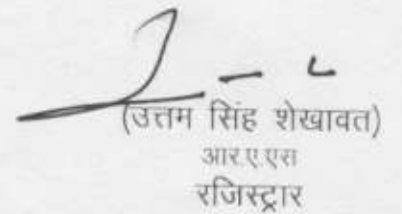 (उत्तम सिंह शेखावत)
आर.ए.एस
रजिस्ट्रार